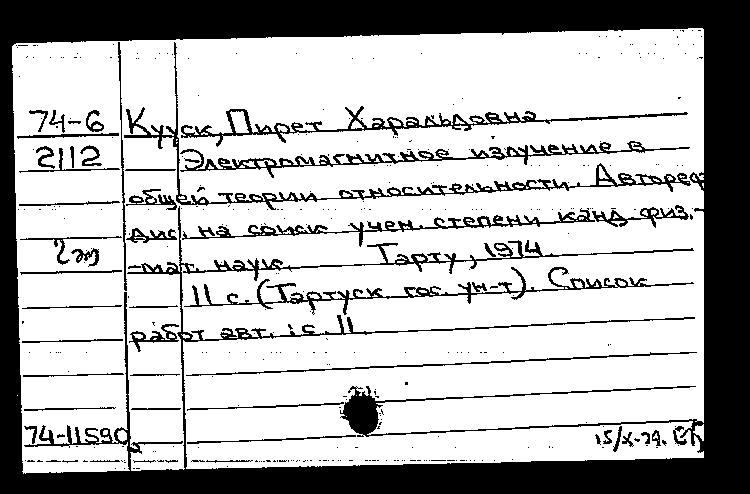 74-6 Кууск, Пирет Харальдовна.
2112 Электромагнитное излучение в
общей теории относительности. Автореф
дис. на соиск учен. степени канд. физ.-
2 эк
-мат. наук. Тарту, 1974.
11 с. (Тартуск. гос. ун-т). Список
работ авт.: с. 11.
74-11590
15/X-74.